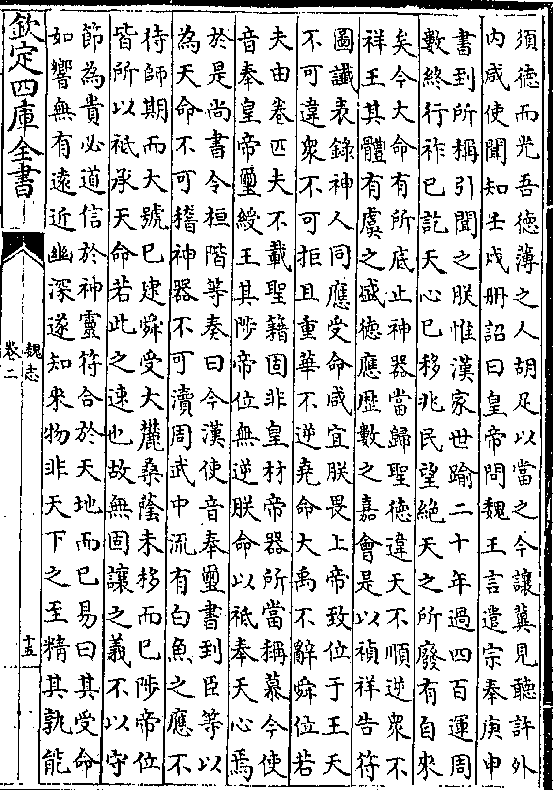 須德而光吾德薄之人胡足以當之今讓冀見聽許外
內咸使聞知壬戌冊詔曰皇帝問魏王言遣宗奉庚申
書到所稱引聞之朕惟漢家世踰二十年過四百運周
數終行祚已訖天心已移兆民望絕天之所廢有自來
矣今大命有所底止神器當歸聖德違天不順逆衆不
祥王其體有虞之盛德應歷數之嘉會是以禎祥告符
圖讖表錄神人同應受命咸宜朕畏上帝致位于王天
不可違衆不可拒且重華不逆堯命大禹不辭舜位若
夫由卷匹夫不載聖籍固非皇材帝器所當稱慕今使
音奉皇帝璽綬王其陟帝位無逆朕命以祗奉天心焉
於是尚書令桓階等奏曰今漢使音奉璽書到臣等以
為天命不可稽神器不可瀆周武中流有白魚之應不
待師期而大號已建舜受大麓桑蔭未移而已陟帝位
皆所以祗承天命若此之速也故無固讓之義不以守
節為貴必道信於神靈符合於天地而已易曰其受命
如響無有遠近幽深遂知來物非天下之至精其孰能
欽定四庫全書
魏志
卷二
十五